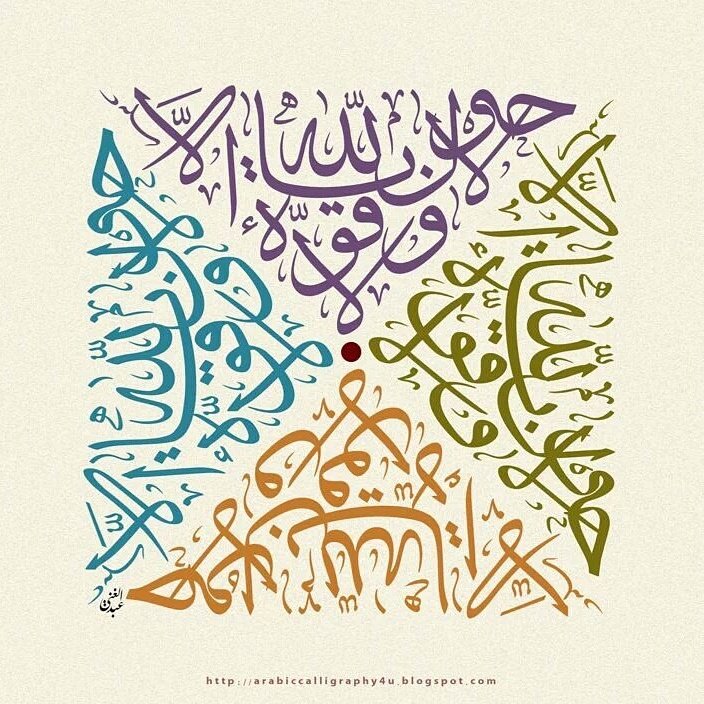 لا حول ولا قوة إلا بالله
لا حول ولا قوة إلا بالله
لا حول ولا قوة إلا بالله
لا حول ولا قوة إلا بالله
عبد الغني
http://arabiccalligraphy4u.blogspot.com